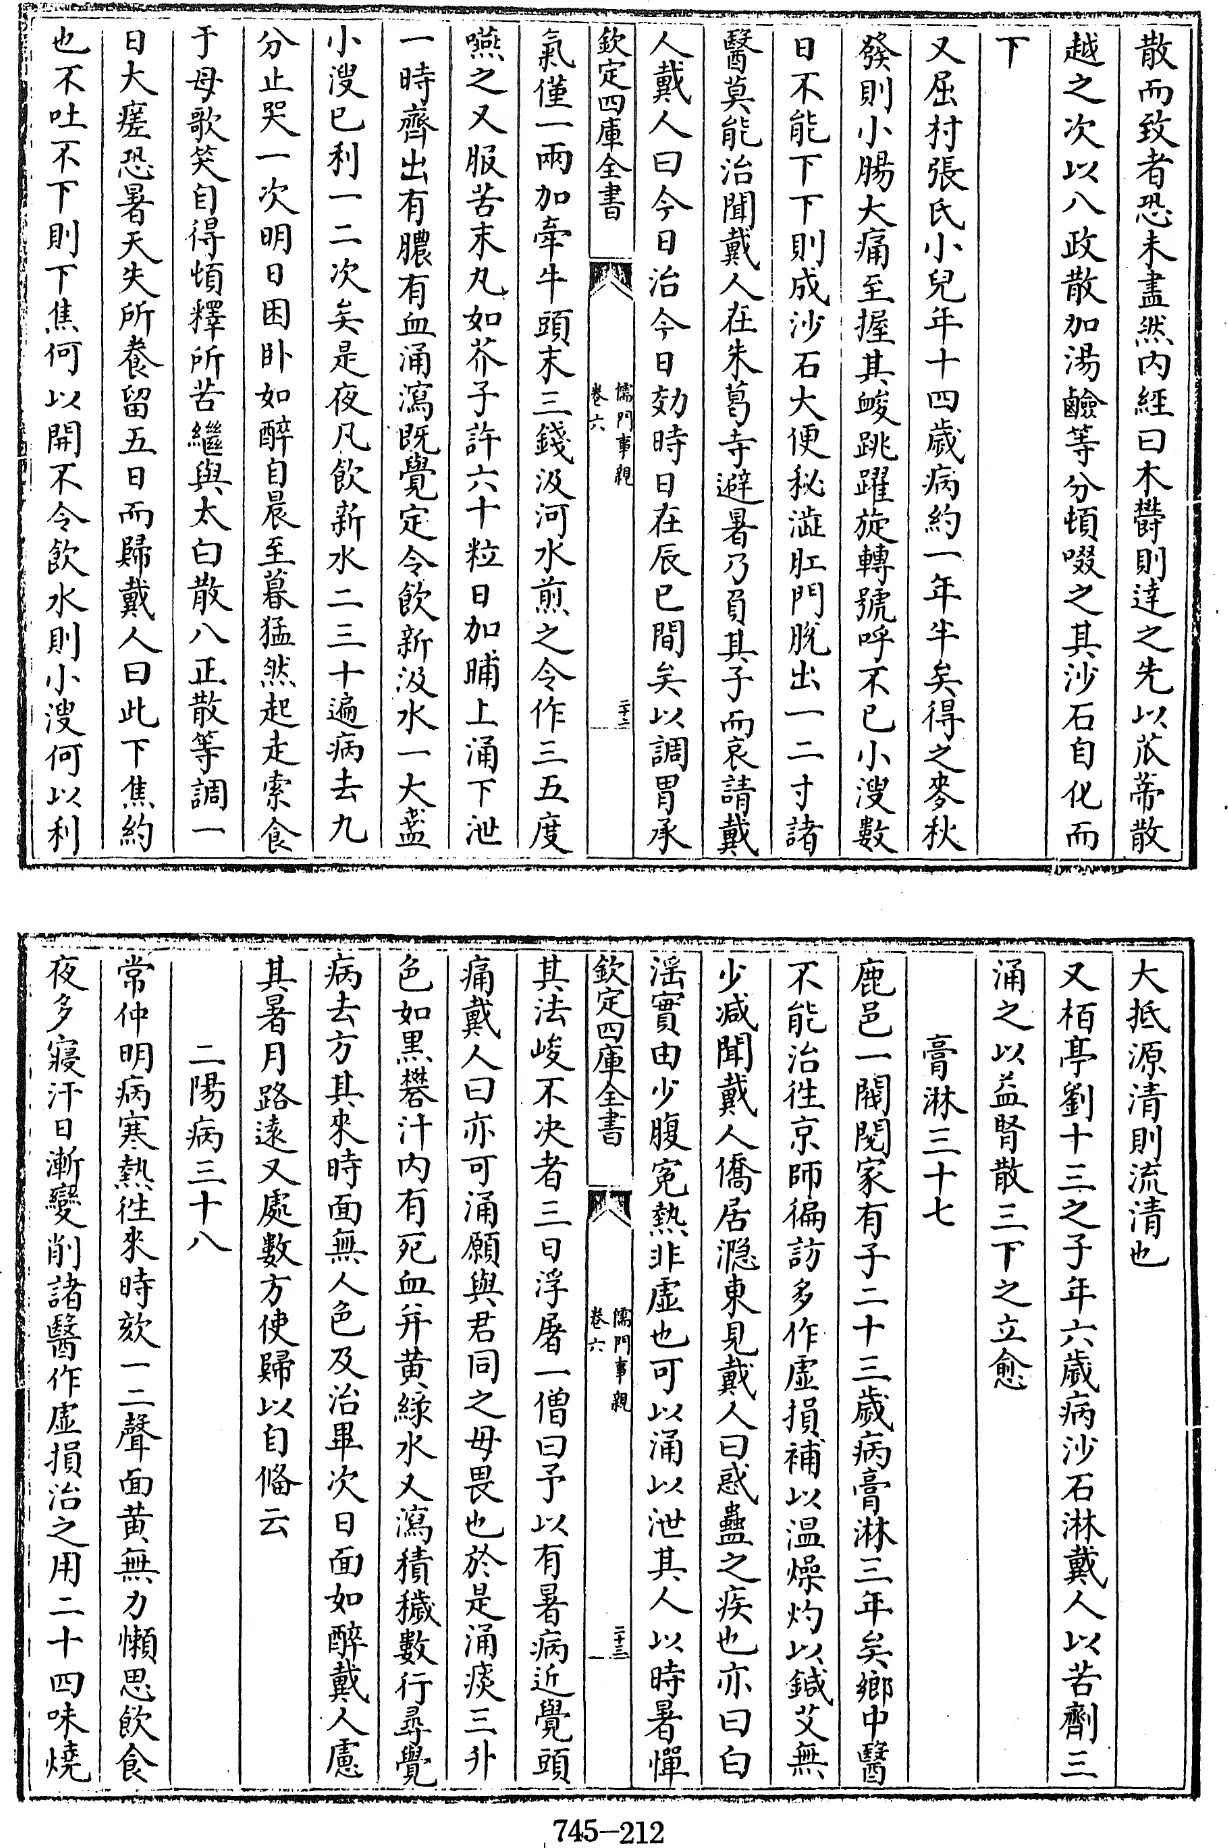 散而致者恐未盡然内經曰木鬱則達之先以苽蒂散
越之次以八政散加湯鹼等分頓啜之其沙石自化而
下
又屈村張氏小兒年十四歲病約一年半矣得之麥秋
發則小腸大痛至握其峻跳躍旋轉號呼不已小溲數
日不能下下則成沙石大便秘澁肛門脫出一二寸諸
醫莫能治聞戴人在朱葛寺避暑乃負其子而哀請戴
人戴人曰今日治今日効時日在辰巳間矣以調胃承
欽定四庫全書
儒門事親
卷六
二十二
氣僅一兩加牽牛頭末三錢汲河水煎之令作三五度
嚥之又服苦末丸如芥子許六十粒日加晡上涌下泄
一時齊出有膿有血涌瀉既覺定令飲新汲水一大盞
小溲已利一二次矣是夜凡飲新水二三十遍病去九
分止哭一次明日困卧如醉自晨至暮猛然起走索食
于母歌笑自得頓釋所苦繼與太白散八正散等調一
日大瘥恐暑天失所養留五日而歸戴人曰此下焦約
也不吐不下則下焦何以開不令飲水則小溲何以利
大抵源清則流清也
又栢亭劉十三之子年六歲病沙石淋戴人以苦劑三
涌之以益腎散三下之立愈
膏淋三十七
鹿邑一閥閱家有子二十三歲病膏淋三年矣鄉中醫
不能治徃京師徧訪多作虛損補以温燥灼以鍼艾無
少減聞戴人僑居㶏東見戴人曰惑蠱之疾也亦曰白
淫實由少腹冤熱非虛也可以涌以泄其人以時暑憚
欽定四庫全書
儒門事親
卷六
二十三
其法峻不決者三日浮屠一僧曰予以有暑病近覺頭
痛戴人曰亦可涌願與君同之毋畏也於是涌痰三升
色如黑礬汁内有死血并黄綠水又瀉積穢數行尋覺
病去方其來時面無人色及治畢次日面如醉戴人慮
其暑月路遠又處數方使歸以自偹云
二陽病三十八
常仲明病寒熱徃來時欬一二聲面黄無力懶思飲食
夜多寢汗日漸變削諸醫作虛損治之用二十四味燒
745-212